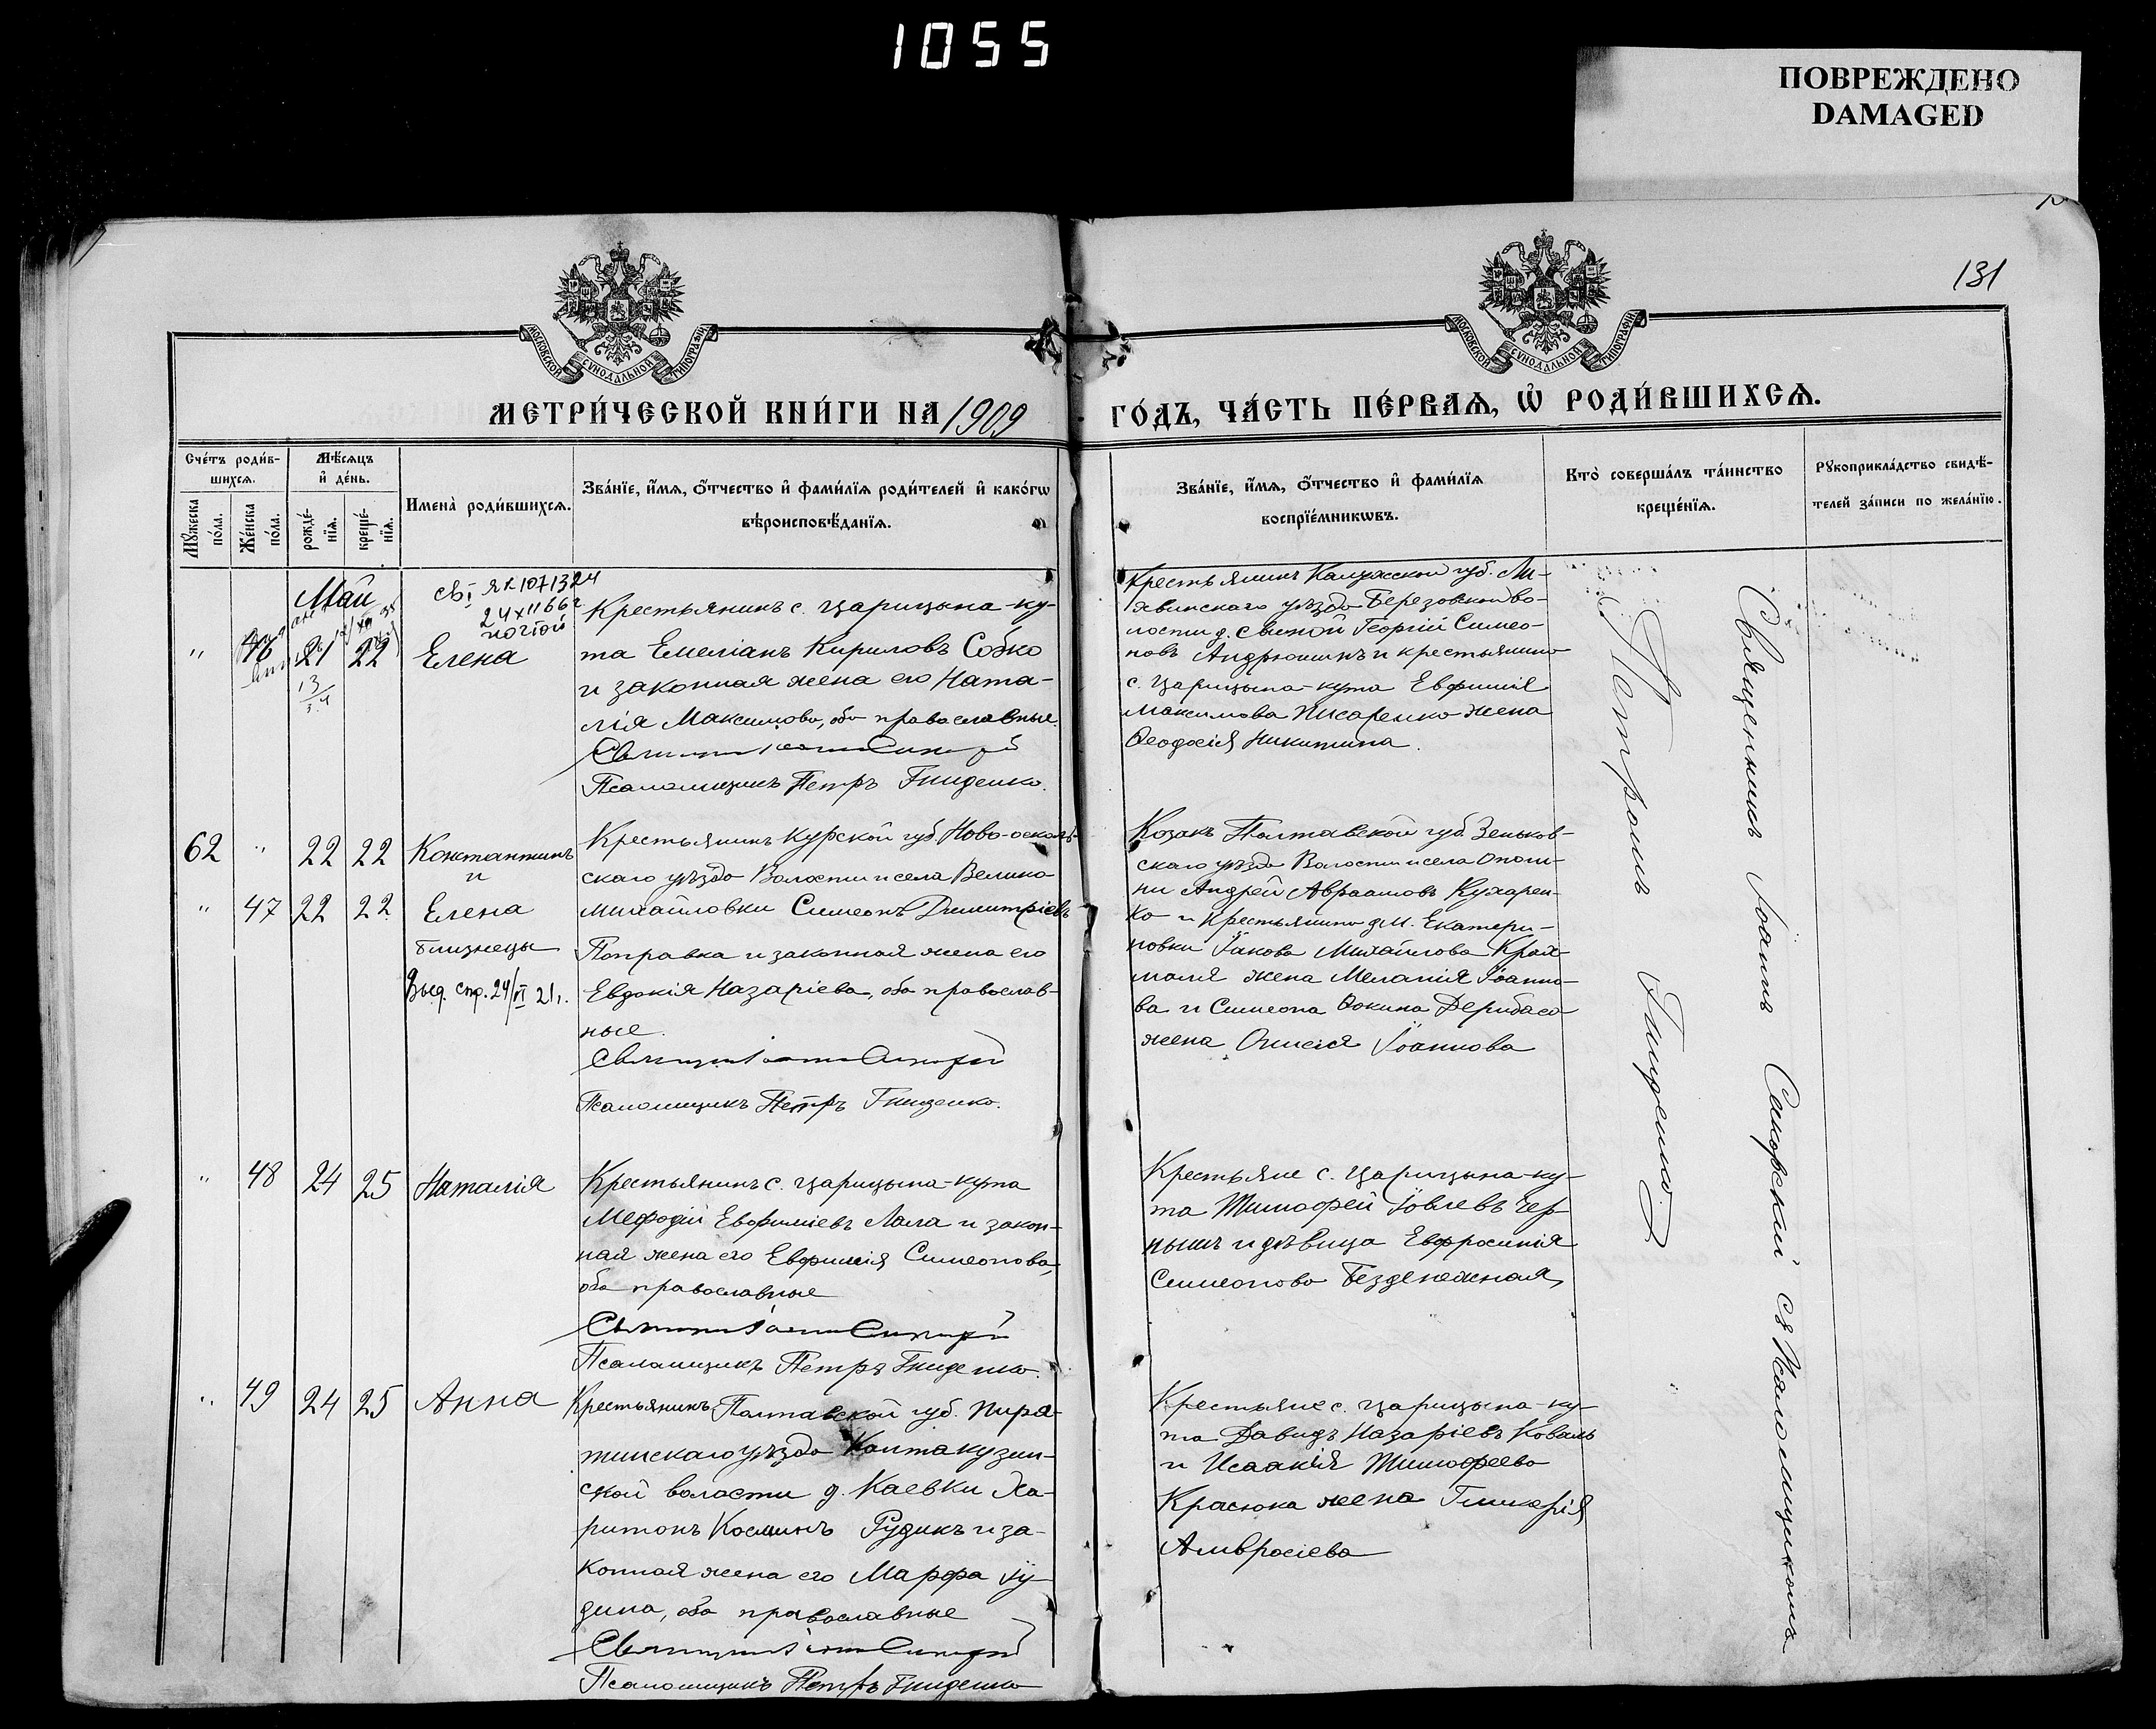 1055
ПОВРЕЖДЕНО
DAMAGED
131
МОСКОВСКОЙ СѴНОДАЛЬНОЙ ТИПОГРАФІИ
МОСКОВСКОЙ СѴНОДАЛЬНОЙ ТИПОГРАФІИ
МЕТРИ́ЧЕСКОЙ КНИ́ГИ НА 1909
ГО́ДЪ, ЧА́СТЬ ПЕ́РВАѦ, Ѡ҆ РОДИ́ВШИХСѦ.
Сче́тъ роди́в-
шихсѧ.
Мꙋ́жеска по́ла.
Же́нска по́ла.
Мѣ́сѧцъ
и҆ де́нь.
рожде́-
нїѧ.
креще́-
нїѧ.
Имена̀ роди́вшихсѧ.
Зва́нїе, и҆́мѧ, ѻ҆́тчество и҆ фами́лїѧ роди́телей и҆ како́гѡ
вѣроисповѣ́данїѧ.
Зва́нїе, и҆́мѧ, ѻ҆́тчество и҆ фами́лїѧ
воспрїе́мникѡвъ.
Кто̀ соверша́лъ та́инство
креще́нїѧ.
Рꙋкоприкла́дство свидѣ́-
телей за́писи по жела́нїю.
Май
почтой
" 46 21 22 Елена
Крестьянинъ с. Царицына-ку-
та Емеліанъ Кириловъ Собко
и законная жена его Ната-
лія Максимова, оба православные.
Псаломщикъ Петръ Гниденко.
Крестьянинъ Калужской губ. Ли-
хвинскаго уѣзда Березовской во-
лости д. Свиной Георгій Симео-
новъ Андрюшинъ и крестьянина
с. Царицына-кута Евфимія
Максимова Писаренко жена
Ѳеодосія Никитина.
62 " 22 22 Константинъ
и
" 47 22 22 Елена
близнецы
Выд. спр. 24/VI 21г.
Крестьянинъ Курской губ. Ново-осколь-
скаго уѣзда Волости и села Велико
михайловки Симеонъ Димитріевъ
Поправка и законная жена его
Евдокія Назаріева, оба православ-
ные.
Псаломщикъ Петръ Гниденко.
Козакъ Полтавской губ. Зеньков-
скаго уѣзда Волости и села Опош-
ни Андрей Авраамовъ Кухарен-
ко и крестьянина д. М. Екатери-
новки Іакова Михайлова Крах-
маля жена Меланія Іоанно-
ва и Симеона Ѳокина Дерибаса
жена Онисія Іоаннова
" 48 24 25 Наталія
Крестьянинъ с. Царицына-кута
Мефодій Евфиміевъ Лала и закон-
ная жена его Евфимія Симеонова,
оба православные
Псаломщикъ Петръ Гниденко.
Крестьяне с. Царицына-ку-
та Тимофей Іовлевъ Чер-
нышъ и дѣвица Евфросинія
Симеонова Безденежная,
" 49 24 25 Анна
Крестьянинъ Полтавской губ. Пиря-
тинскаго уѣзда Кантакузин-
ской волости д. Каевки Ха-
ритонъ Косминъ Рудикъ и за-
конная жена его Марфа Іу-
дина, оба православные
Псаломщикъ Петръ Гниденко
Крестьяне с. Царицына-ку-
та Давидъ Назаріевъ Коваль
и Исаакія Тимофеева
Красюка жена Гликерія
Амвросіева
Священникъ Іоаннъ Сикорскій съ Псаломщикомъ
Петромъ Гниденко.